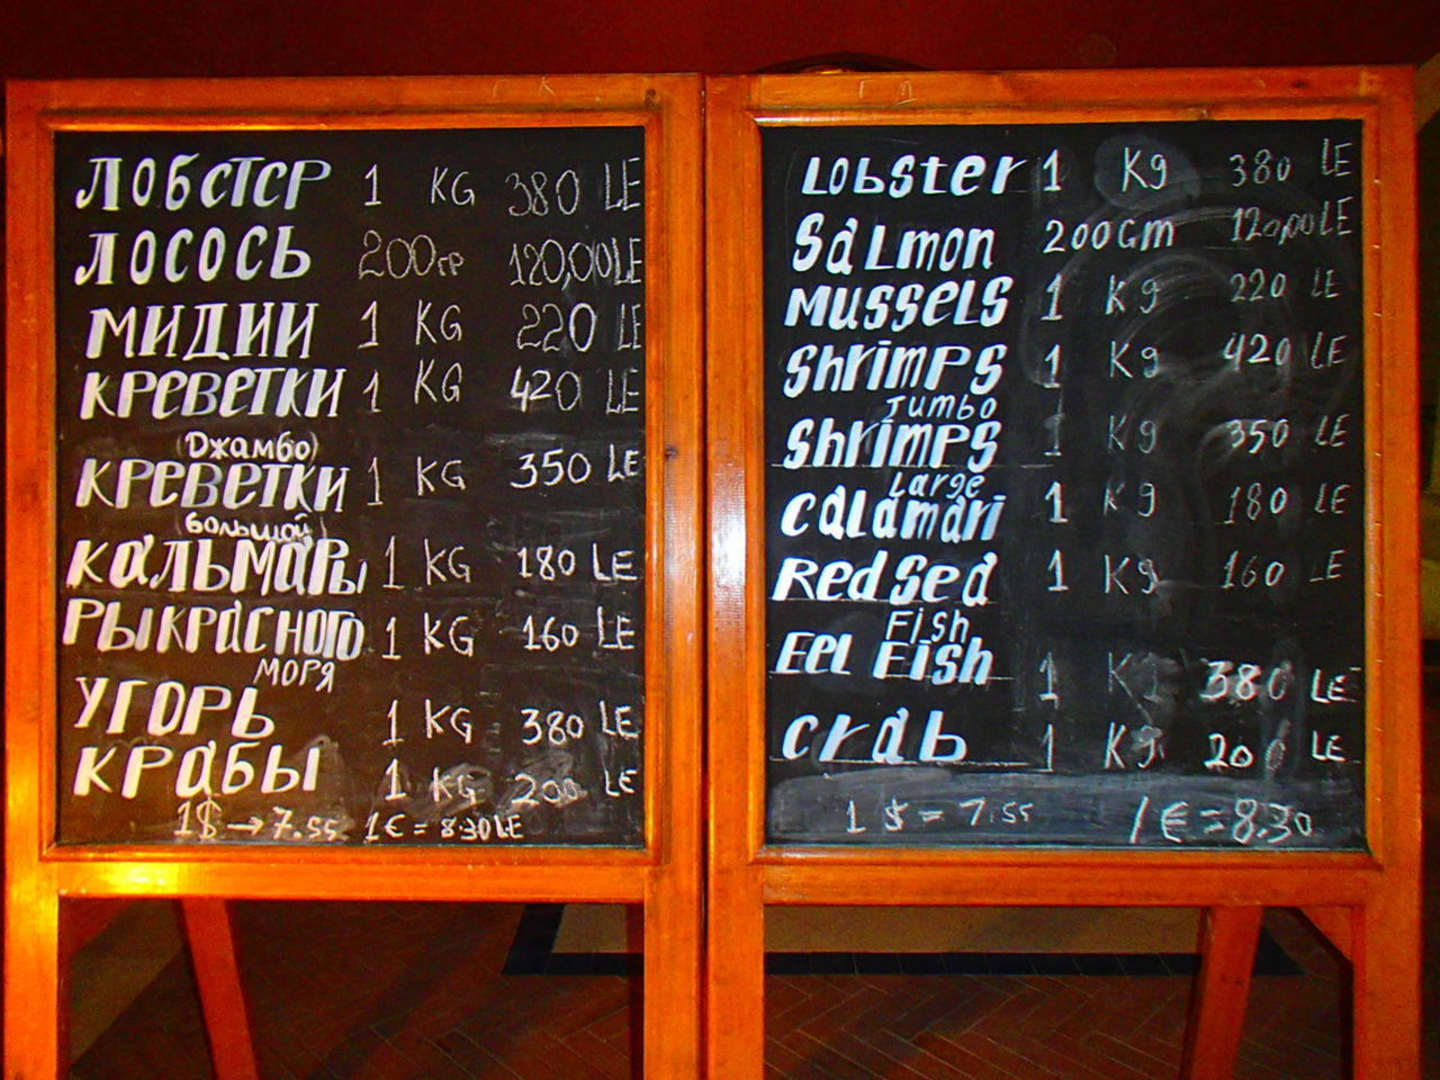 ЛОБСТЕР 1 KG 380 LE
ЛОСОСЬ 200гр 120,00LE
МИДИИ 1 KG 220 LE
КРЕВЕТКИ 1 KG 420 LE
(Джамбо)
КРЕВЕТКИ 1 KG 350 LE
(большой)
КАЛЬМАРЫ 1 KG 180 LE
РЫ КРАСНОГО 1 KG 160 LE
МОРЯ
УГОРЬ 1 KG 380 LE
КРАБЫ 1 KG 200 LE
1$ → 7.55 1€ = 8.30LE
Lobster 1 Kg 380 LE
Salmon 200Gm 120,00LE
Mussels 1 Kg 220 LE
Shrimps 1 Kg 420 LE
Jumbo
Shrimps 1 Kg 350 LE
Large
Calamari 1 Kg 180 LE
Red Sea 1 Kg 160 LE
Fish
Eel Fish 1 Kg 380 LE
Crab 1 Kg 200 LE
1 $ = 7.55 1€ = 8.30